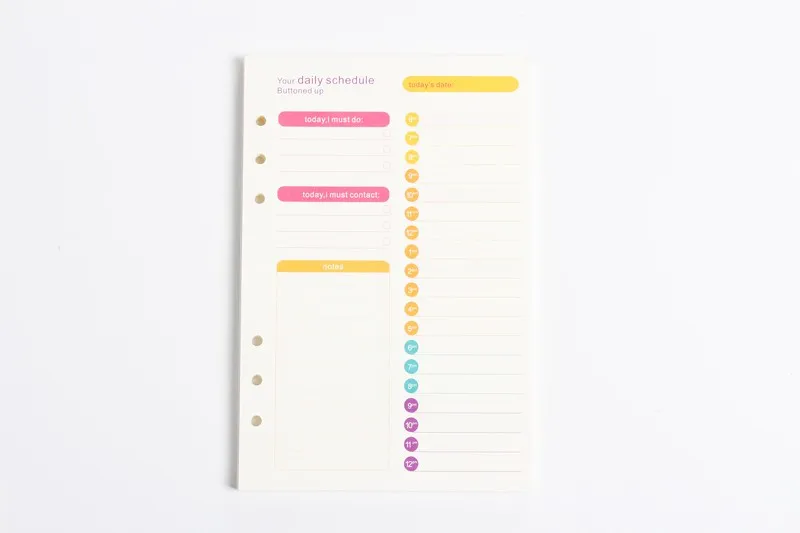 Your daily schedule
Buttoned up
today's date:
today,i must do:
today,i must contact:
notes
6am
7am
8am
9am
10am
11am
12pm
1pm
2pm
3pm
4pm
5pm
6pm
7pm
8pm
9pm
10pm
11pm
12pm